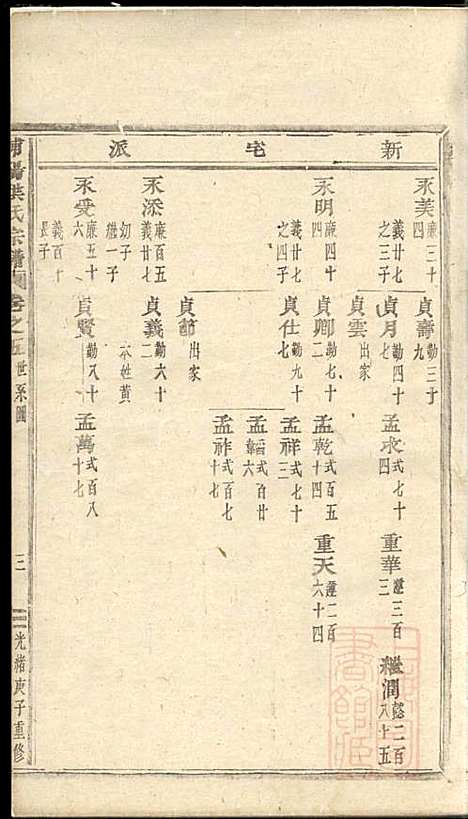 新宅派
永美
廉三十四
義廿七之三子
貞壽
勤三十九
貞月
勤四十七
孟求
式七十四
重華
蓮三百三
繼潤
懿二百八十五
貞雲
出家
永明
廉四十四
義廿七之四子
貞卿
勤七十二
孟乾
式百五十四
重天
蓮二百六十四
貞仕
勤九十七
孟祥
式七十三
孟韜
式百廿六
孟祚
式百七十七
貞節
出家
永添
廉百五
義廿七幼子
繼一子
貞義
勤六十二
本姓黃
永受
廉五十六
義百十長子
貞賢
勤八十
孟萬
式百八十七
浦陽洪氏宗譜
卷之五
世系圖
三
光緒庚子重修